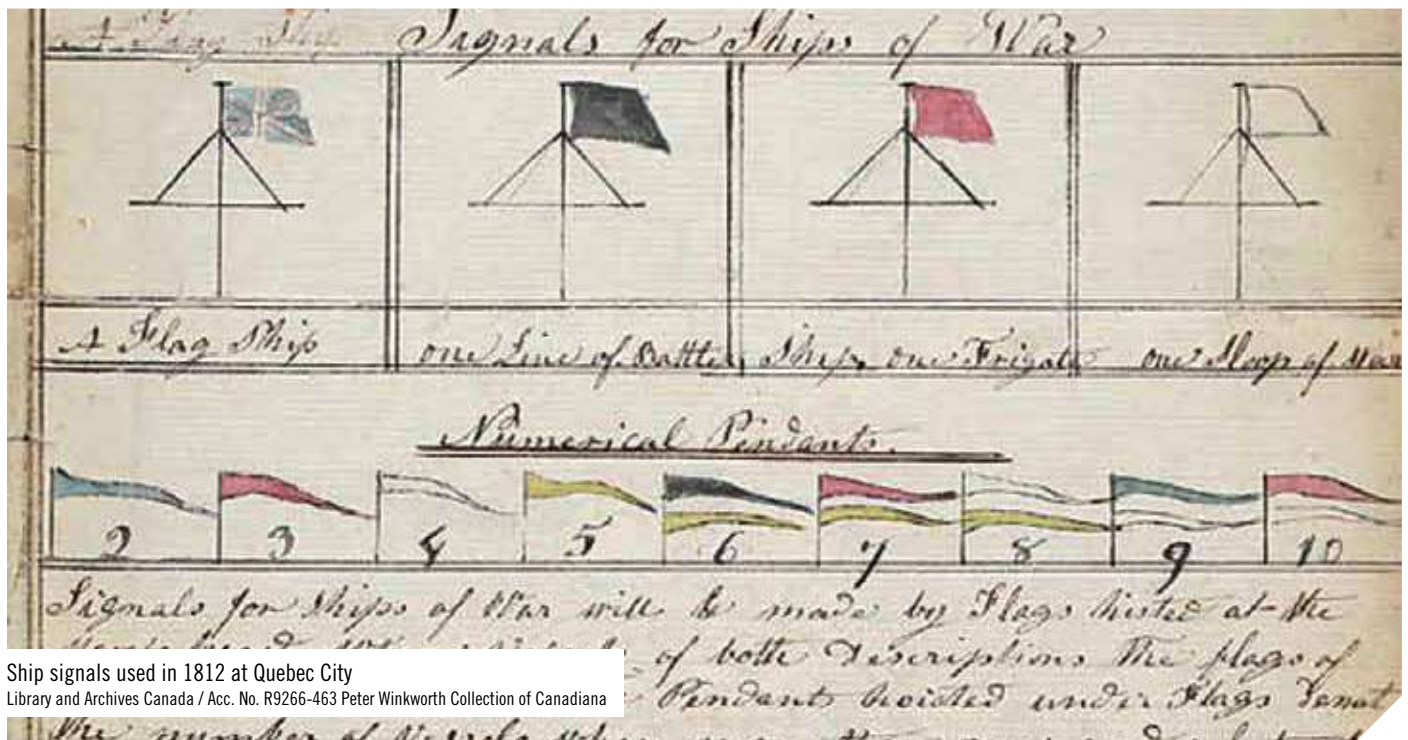 Signals for Ships of War
A Flag Ship one Line of Battle Ship, one Frigate one Sloop of War
Numerical Pendants.
2 3 4 5 6 7 8 9 10
Signals for Ships of War will be made by Flags histed at the
of both Descriptions the flags of
Pendant hoisted under Flags Denot
the number of Vessels
Ship signals used in 1812 at Quebec City
Library and Archives Canada / Acc. No. R9266-463 Peter Winkworth Collection of Canadiana